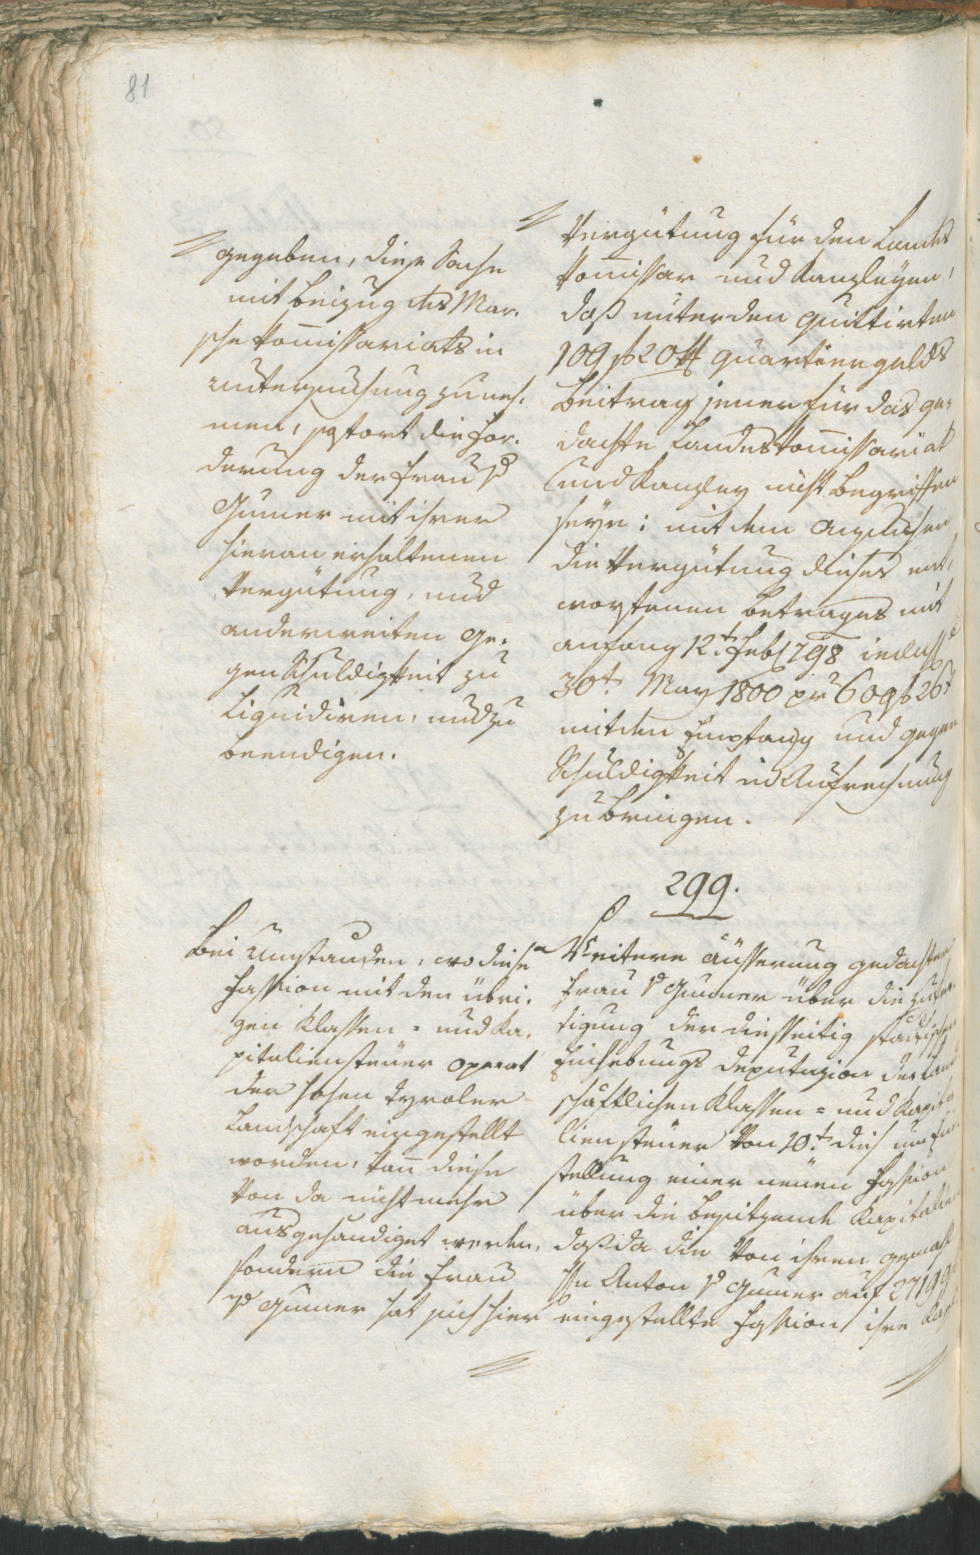 81
gegeben, diese Sache
mit beizug des Mar¬
sche Kom̃issariats in
untersuchung zu neh¬
men, sofort die For¬
derung der Frau v
Gumer mit ihrer
hieran erhaltenen
Vergütung, und
anderweiten Ge¬
gen Schuldigkeit zu
Liquidiren, und zu
beendigen.
Vergütung für den Landes
Kom̃issar und Kanzleyen,
daß unter den quittirten
109 f 20 x quartiergelds
Beitrag jener für das ge¬
dachte Landeskom̃issariat
und Kanzley nicht begriffen
seÿe: mit dem Ansuchen
die Vergütung dieses ent¬
worfenen betrages mit
anfang 12t. Feb 1798
30t. May 1800 pr 609 f 26 x
mit dem Empfang und gegen
Schuldigkeit in Aufrechnung
zu bringen.
299.
Bei Umständen, wo diese
Fassion mit den übri¬
gen Klassen- und Ka¬
pitaliensteuer Operat
der hohen Tyroler
Landschaft eingestellt
worden, kan̄ diese
von da nicht mehr
ausgehändiget werden,
sondern die Frau
v Gumer hat sich hier
Weitere äusserung gedachter
Frau v Gumer über die
tigung der diesseitig städtischen
Einhebungs Deputazion der Land
schäftlichen Klassen- und Kapita
lien steuer von 10t. dies um Ein
stellung einer neuen Fassion
über die besitzende Kapitalien
daß da die von ihren gemahl
Hn Anton v Gumer auf 27199 f
eingestellte Fassion ihre